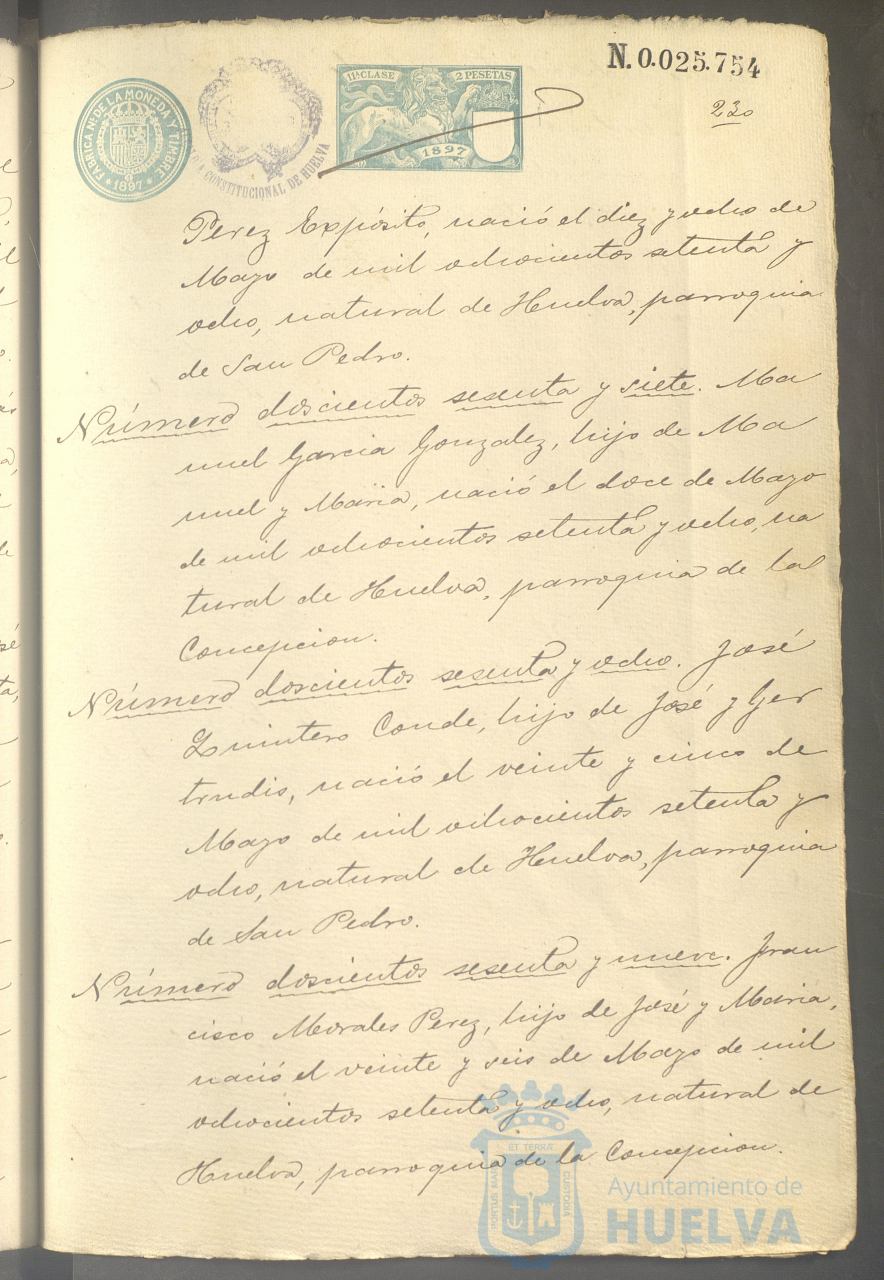 N. 0.025.754
FABRICA Nal. DE LA MONEDA Y TIMBRE
1897
CONSTITUCIONAL DE HUELVA
11ª CLASE 2 PESETAS
1897
230
Perez Expósito, nació el diez y ocho de
Mayo de mil ochocientos setenta y
ocho, natural de Huelva, parroquia
de San Pedro.
Número doscientos sesenta y siete. Ma
nuel Garcia Gonzalez, hijo de Ma
nuel y Maria, nació el doce de Mayo
de mil ochocientos setenta y ocho, na
tural de Huelva, parroquia de la
Concepcion.
Número doscientos sesenta y ocho. José
Quintero Conde, hijo de José y Ger
trudis, nació el veinte y cinco de
Mayo de mil ochocientos setenta y
ocho, natural de Huelva, parroquia
de San Pedro.
Número doscientos sesenta y nueve. Fran
cisco Morales Perez, hijo de José y Maria,
nació el veinte y seis de Mayo de mil
ochocientos setenta y ocho, natural de
Huelva, parroquia de la Concepcion.
PORTUS MARIS ET TERRÆ CUSTODIA
Ayuntamiento de
HUELVA